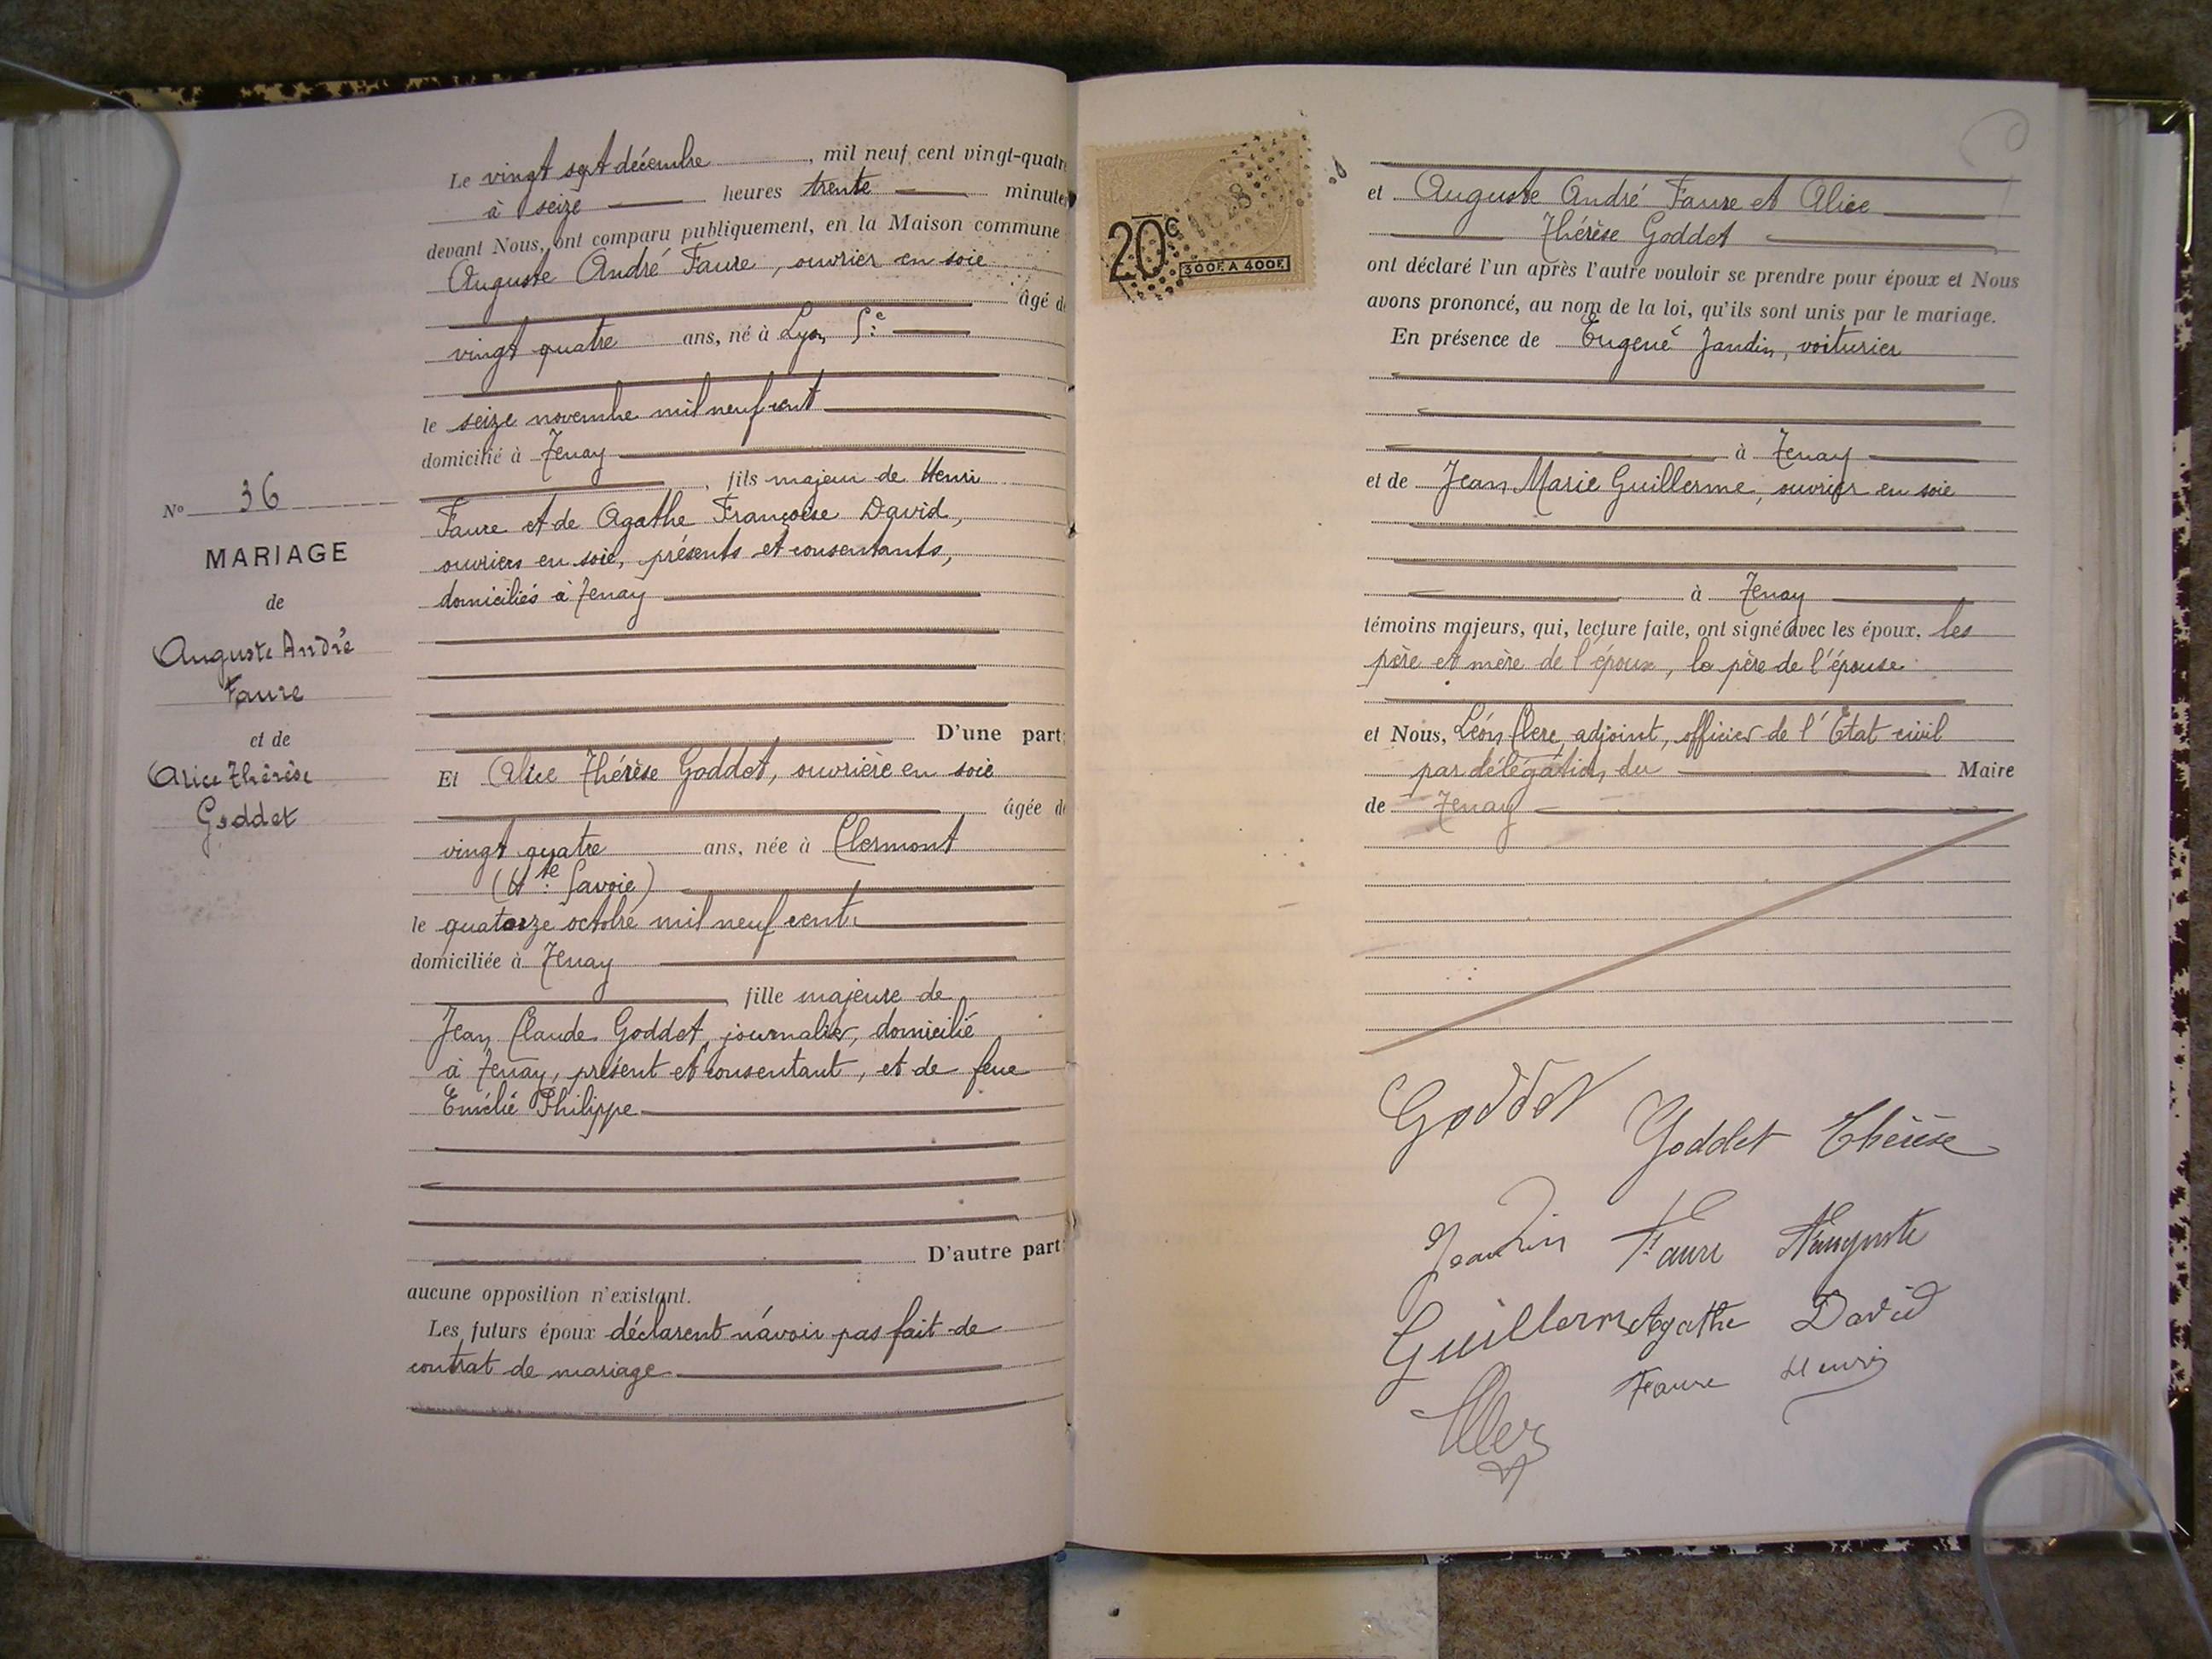 Le vingt sept décembre, mil neuf cent vingt-quatre
à seize heures trente minutes
devant Nous, ont comparu publiquement, en la Maison commune
Auguste André Faure, ouvrier en soie
âgé de
vingt quatre ans, né à Lyon 5.e
le seize novembre mil neuf cent
domicilié à Tenay
, fils majeur de Henri
Faure et de Agathe Françoise David,
ouvriers en soie, présents et consentants,
domiciliés à Tenay
D'une part;
Et Alice Thérèse Goddet, ouvrière en soie
âgée de
vingt quatre ans, née à Clermont
(Hte. Savoie)
le quatorze octobre mil neuf cent
domiciliée à Tenay
, fille majeure de
Jean Claude Goddet, journalier, domicilié
à Tenay, présent et consentant, et de feue
Emélie Philippe
D'autre part;
aucune opposition n'existant.
Les futurs époux déclarent n'avoir pas fait de
contrat de mariage
No 36
MARIAGE
de
Auguste André
Faure
et de
Alice Thérèse
Goddet
20c
300F. A 400F.
et Auguste André Faure et Alice
Thérèse Goddet
ont déclaré l'un après l'autre vouloir se prendre pour époux et Nous
avons prononcé, au nom de la loi, qu'ils sont unis par le mariage.
En présence de Eugène Jandin, voiturier
à Tenay
et de Jean Marie Guillerme, ouvrier en soie
à Tenay
témoins majeurs, qui, lecture faite, ont signé avec les époux, les
père et mère de l'époux, le père de l'épouse
et Nous, Léon Clerc, adjoint, officier de l'Etat civil
par délégation du Maire
de Tenay
Goddet
Goddet Thérèse
Jeandin Faure Auguste
Guillerme Agathe David
Faure Henri